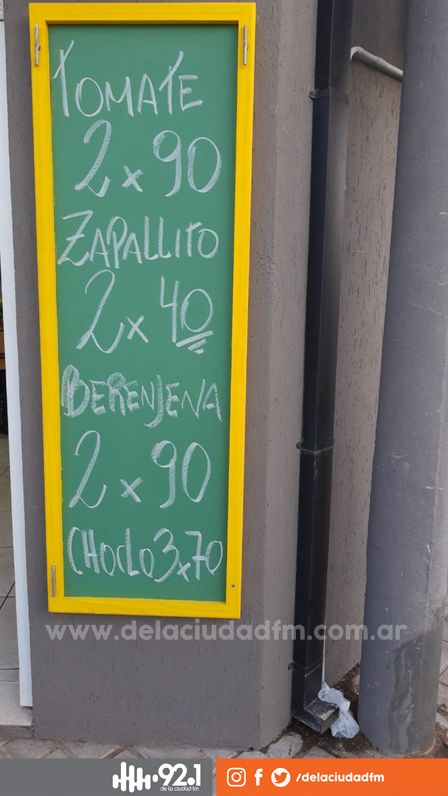 TOMATE
2 x 90
ZAPALLITO
2 x 40
BERENJENA
2 x 90
CHOCLO 3x70
www.delaciudadfm.com.ar
92.1
de la ciudad fm
/delaciudadfm